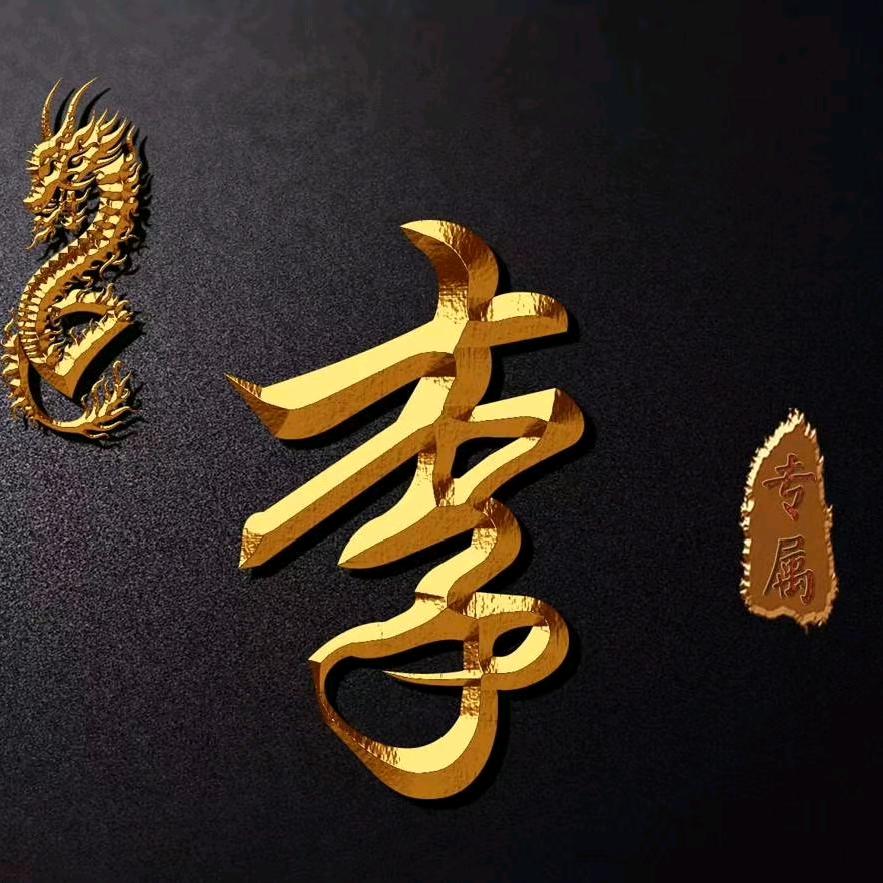 李
专属